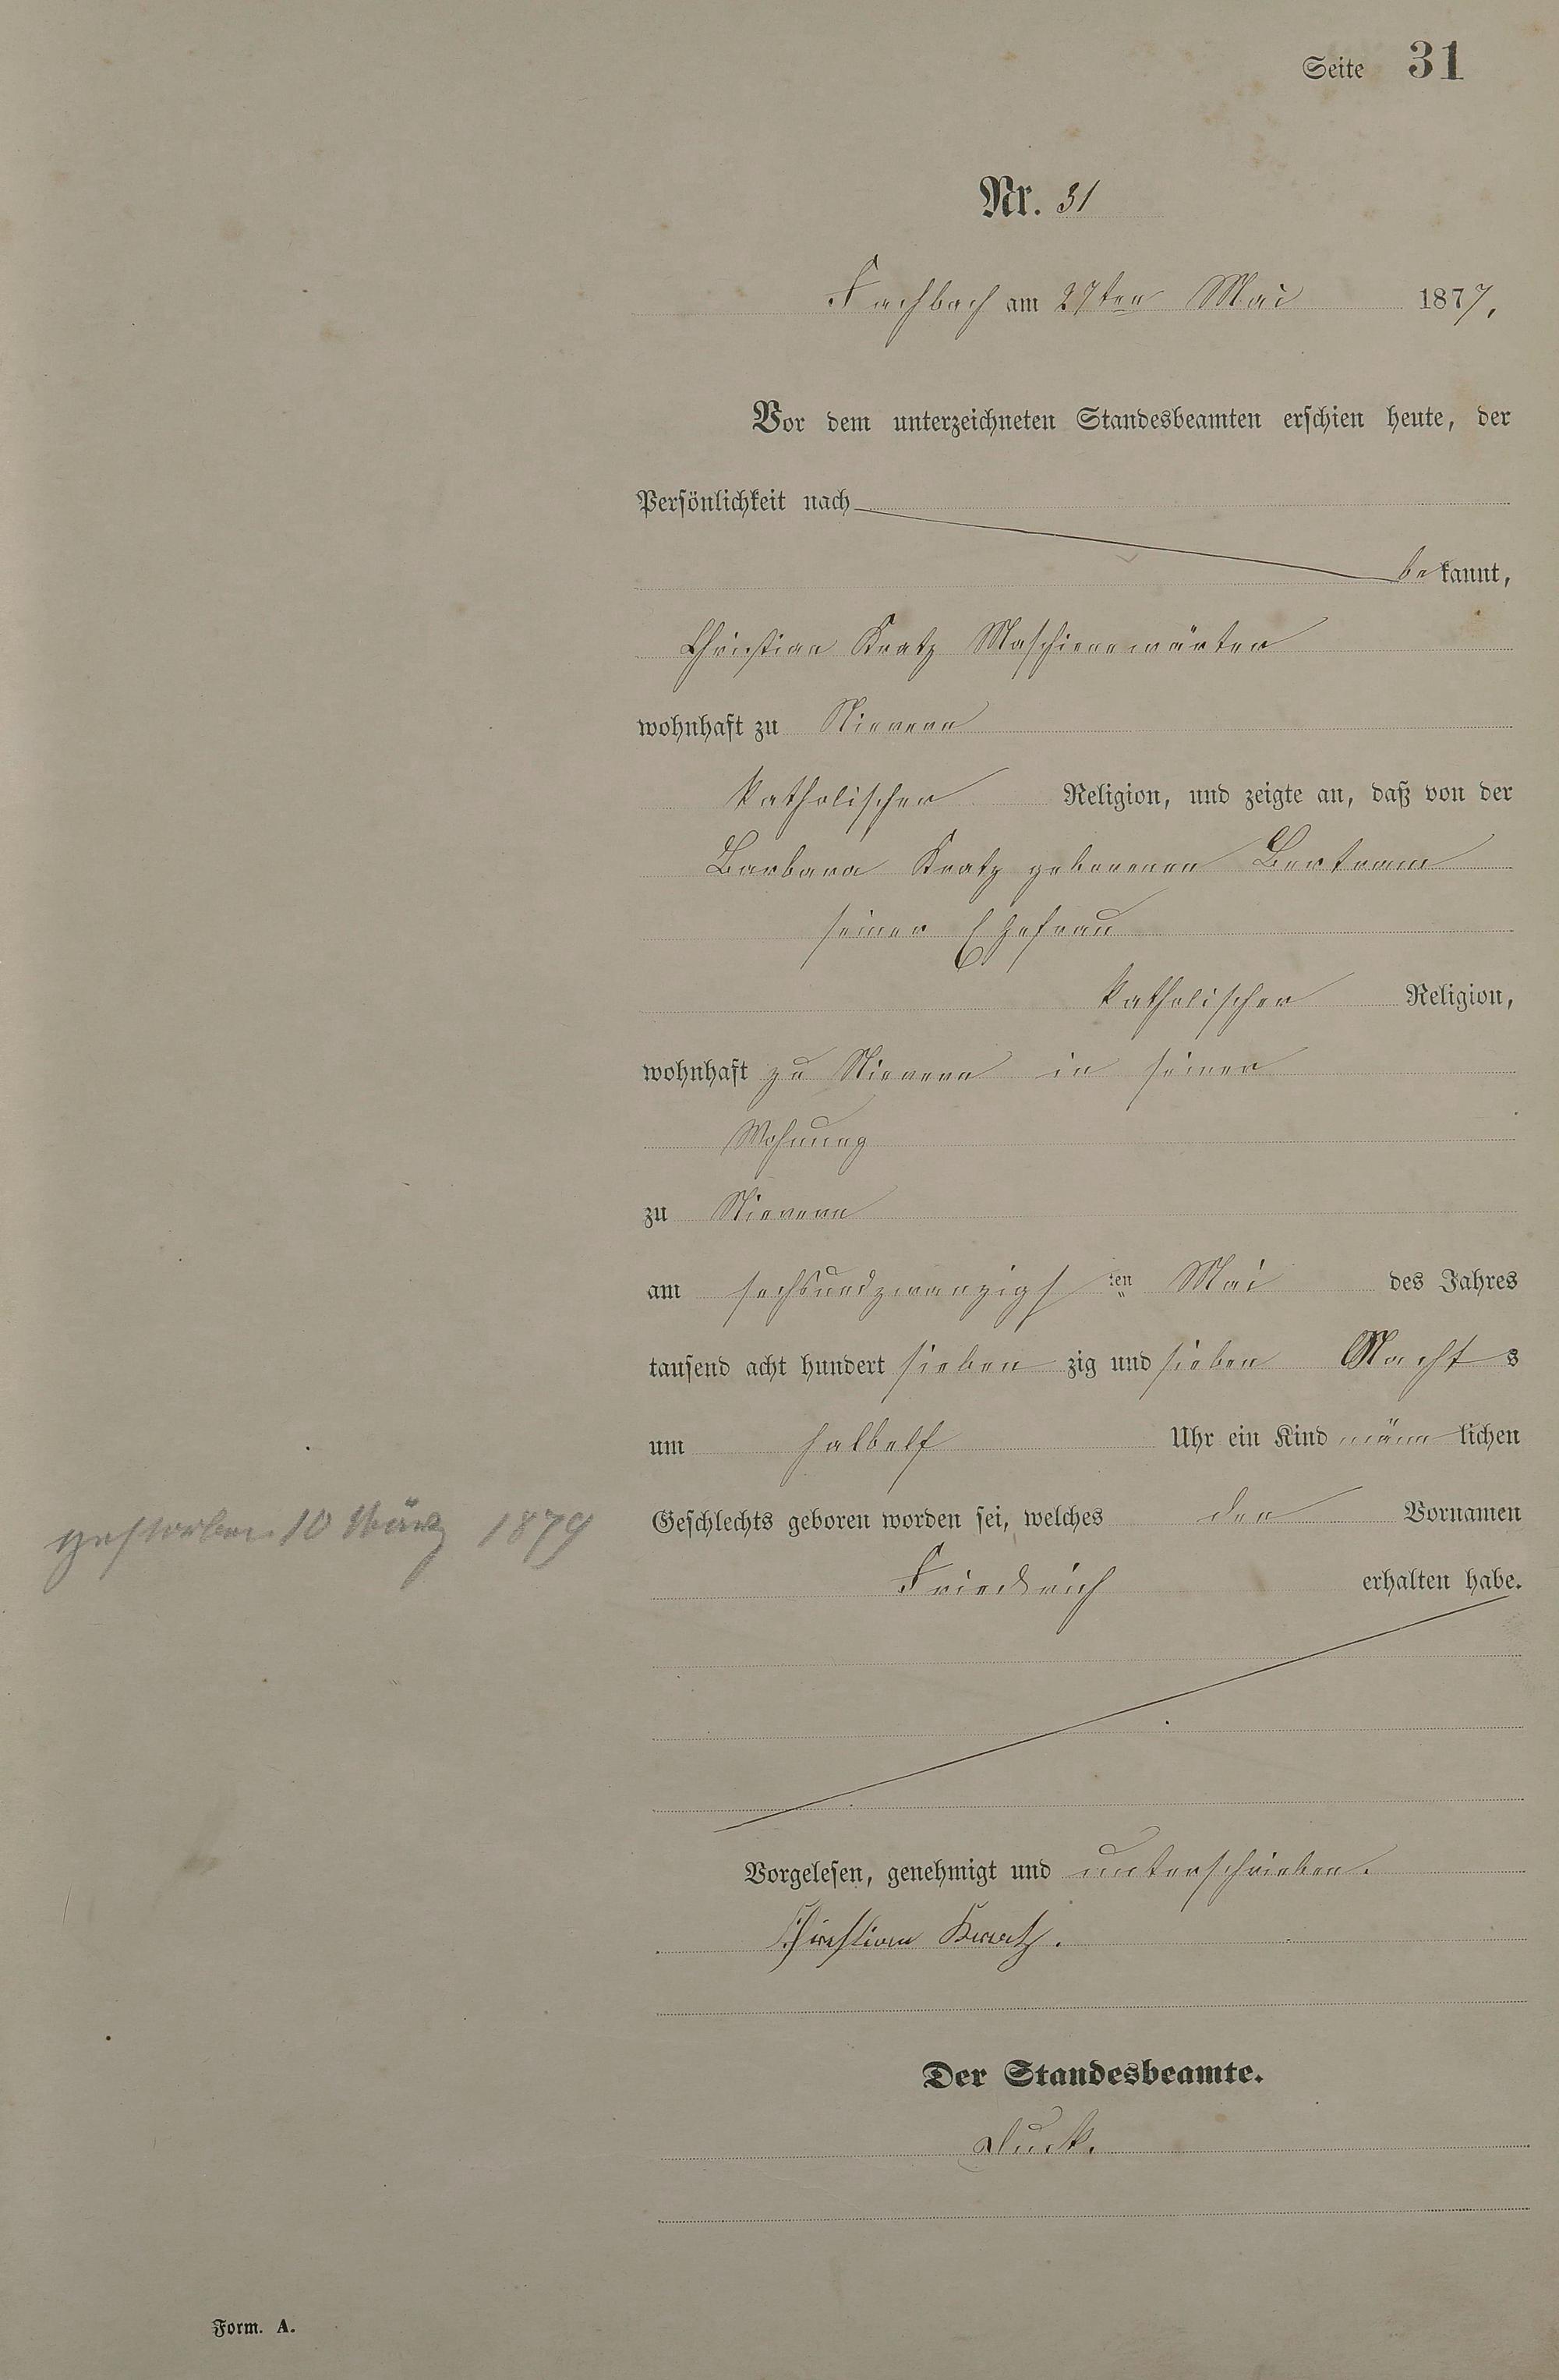 Seite 31
Nr. 31
Fachbach am 27ten Mai 1877,
Vor dem unterzeichneten Standesbeamten erschien heute, der
Persönlichkeit nach
bekannt,
Christian Kratz Maschienewärter
wohnhaft zu Nievern
katholischer Religion, und zeigte an, daß von der
Barbara Kratz geborenen Bertram
seiner Ehefrau
katholischer Religion,
wohnhaft zu Nievern in seiner
Wohnung
zu Nievern
am sechsundzwanzigsten Mai des Jahres
tausend acht hundert siebenzig und sieben Nachts
um halbelf Uhr ein Kind männlichen
gestorben 10 März 1879
Geschlechts geboren worden sei, welches den Vornamen
Friedrich erhalten habe.
Vorgelesen, genehmigt und unterschrieben.
Christian Kratz.
Der Standesbeamte.
Form. A.